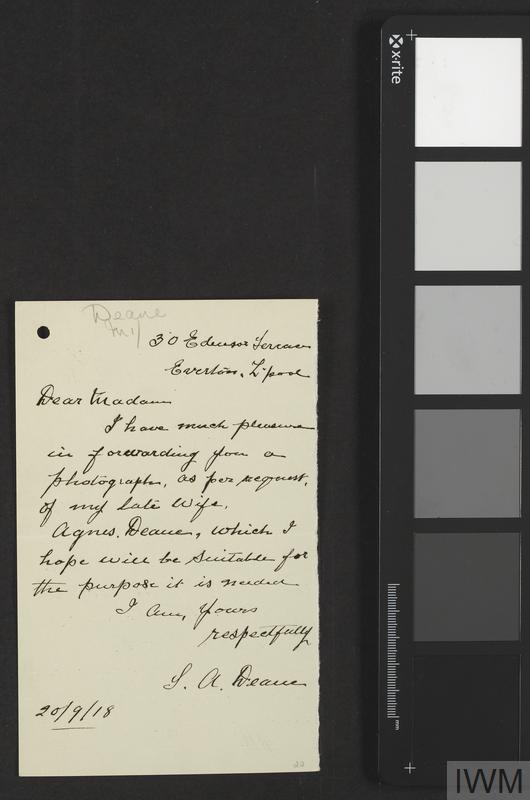 Deane
M1/
30 Edensor Terrace
Everton, L'pool
Dear Madam
I have much pleasure
in forwarding you a
photograph, as per request,
of my late Wife,
Agnes. Deane, which I
hope will be suitable for
the purpose it is needed
I am, Yours
respectfully
S. A. Deane
20/9/18
22
x·rite
mm
IWM